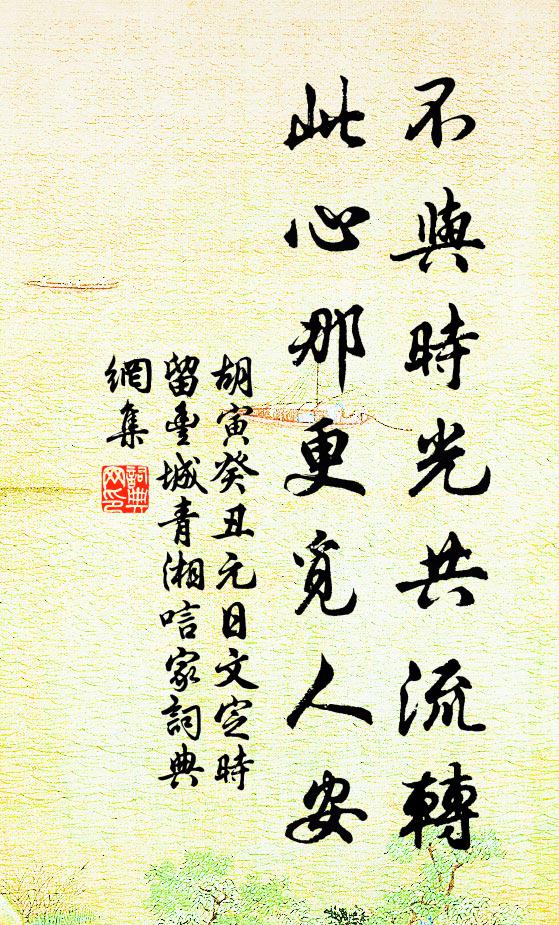 不與時光共流轉
此心那更覓人安
胡寅癸丑元日文定時
留豐城青湘唁家詞典
網集
詞典
网印